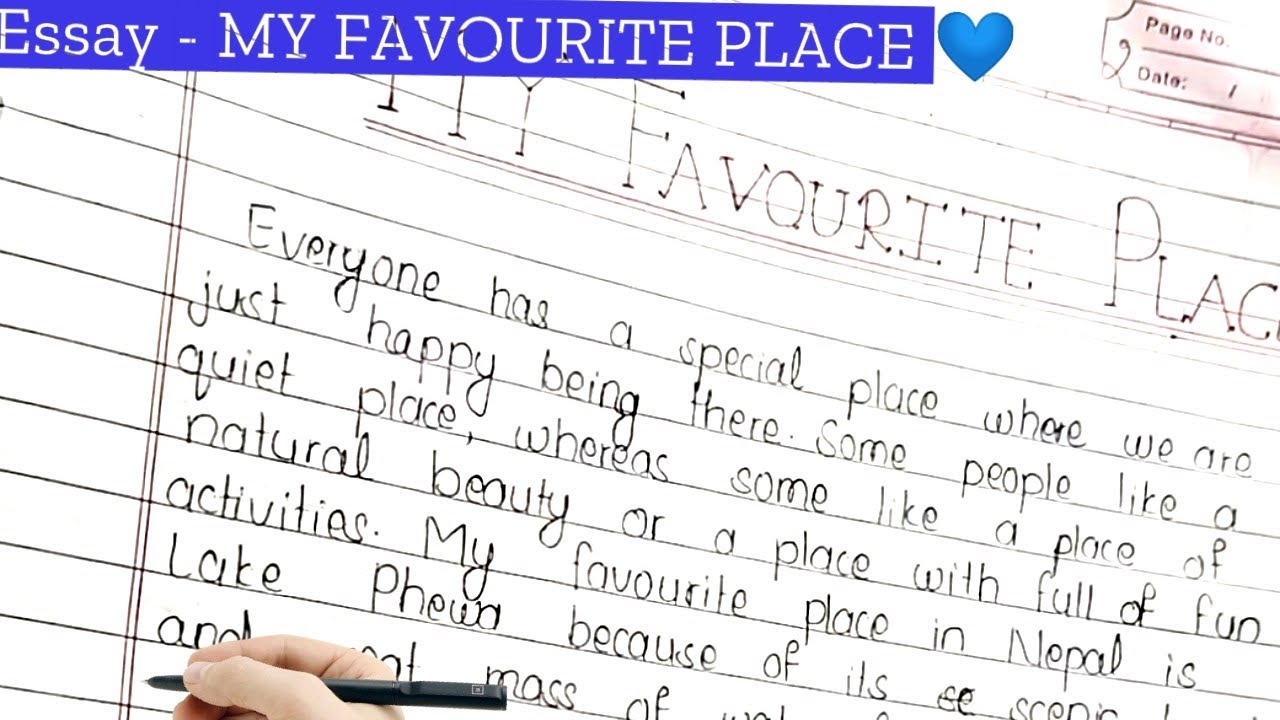 Essay - MY FAVOURITE PLACE 💙
Page No.
Date: /
MY FAVOURITE
Everyone has a special place where we are
just happy being there. Some people like a
quiet place, whereas some like a place of
natural beauty or a place with full of fun
activities. My favourite place in Nepal is
Lake Phewa because of its scenic
and mass of